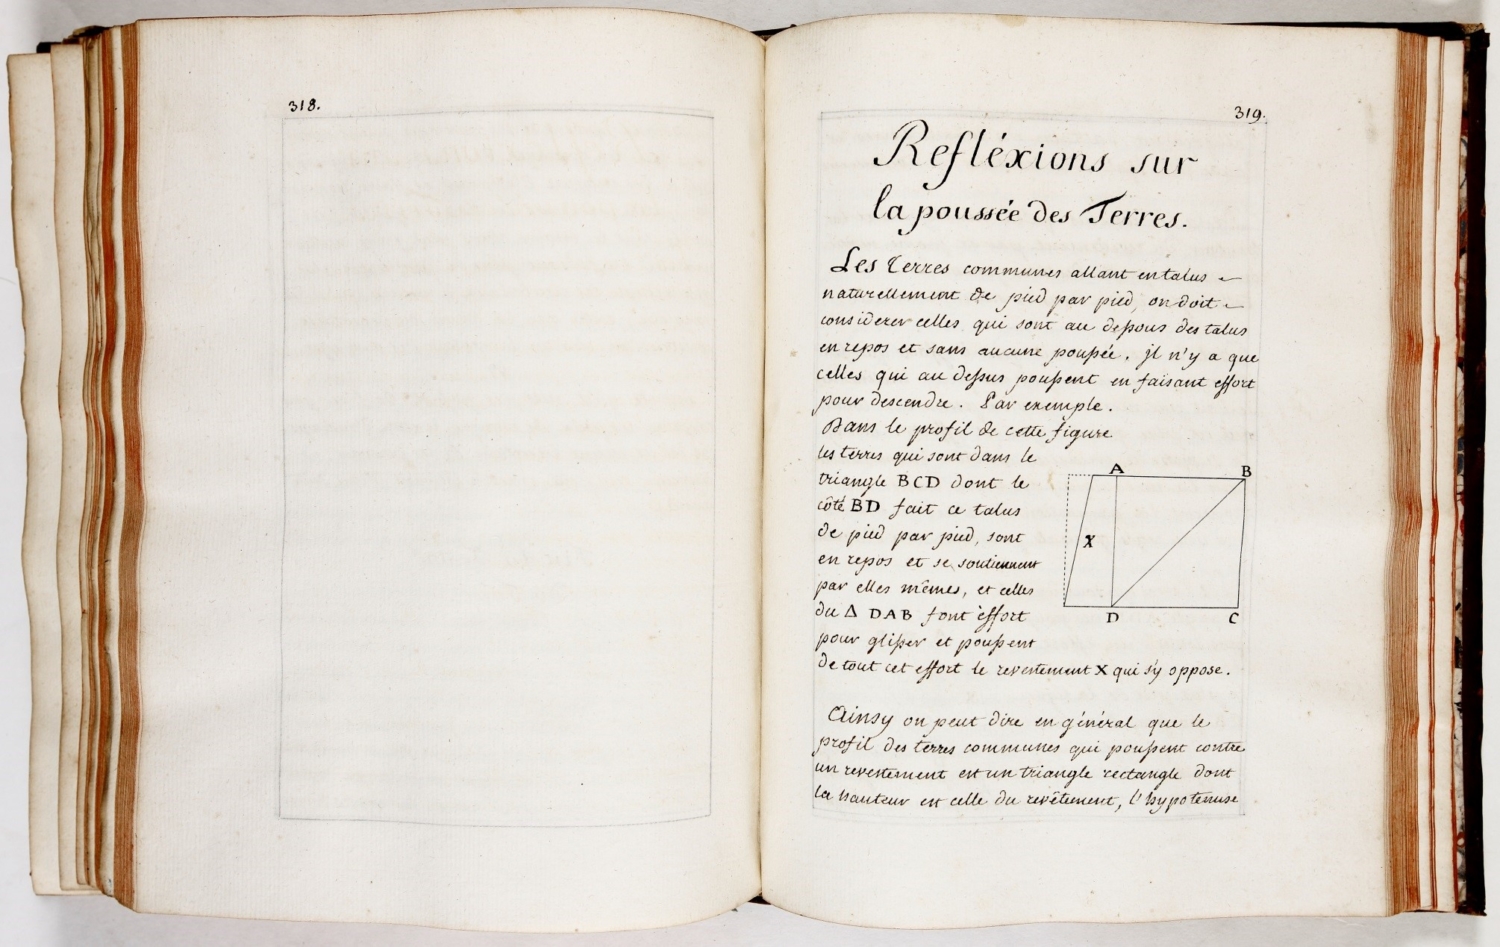 318.
319.
Refléxions sur
la poussée des Terres.
Les Terres communes allant en talus
naturellement de pied par pied, on doit
considerer celles qui sont au dessous des talus
en repos et sans aucune poussée. jl n'y a que
celles qui au dessus poussent en faisant effort
pour descendre. Par exemple.
Dans le profil de cette figure
les terres qui sont dans le
triangle BCD dont le
côté BD fait ce talus
de pied par pied, sont
en repos et se soutiennent
par elles mêmes, et celles
du Δ DAB font éffort
pour glisser et poussent
de tout cet effort le revestement X qui s'y oppose.
A B
X
D C
Ainsy on peut dire en général que le
profil des terres communes qui poussent contre
un revestement est un triangle rectangle dont
la hauteur est celle du revêtement, l'hypotenuse